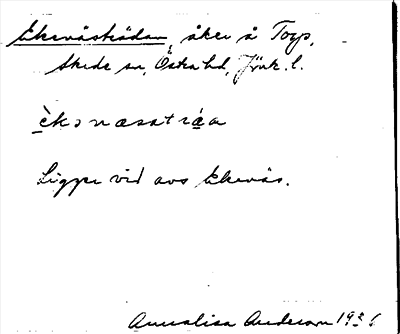 Ekenästrädan, åker å Torp,
Skede sn, Östra hd, Jönk. l.
èkɔnæsstráa
Ligger vid avs Ekenäs.
Annalisa Anderson 1936